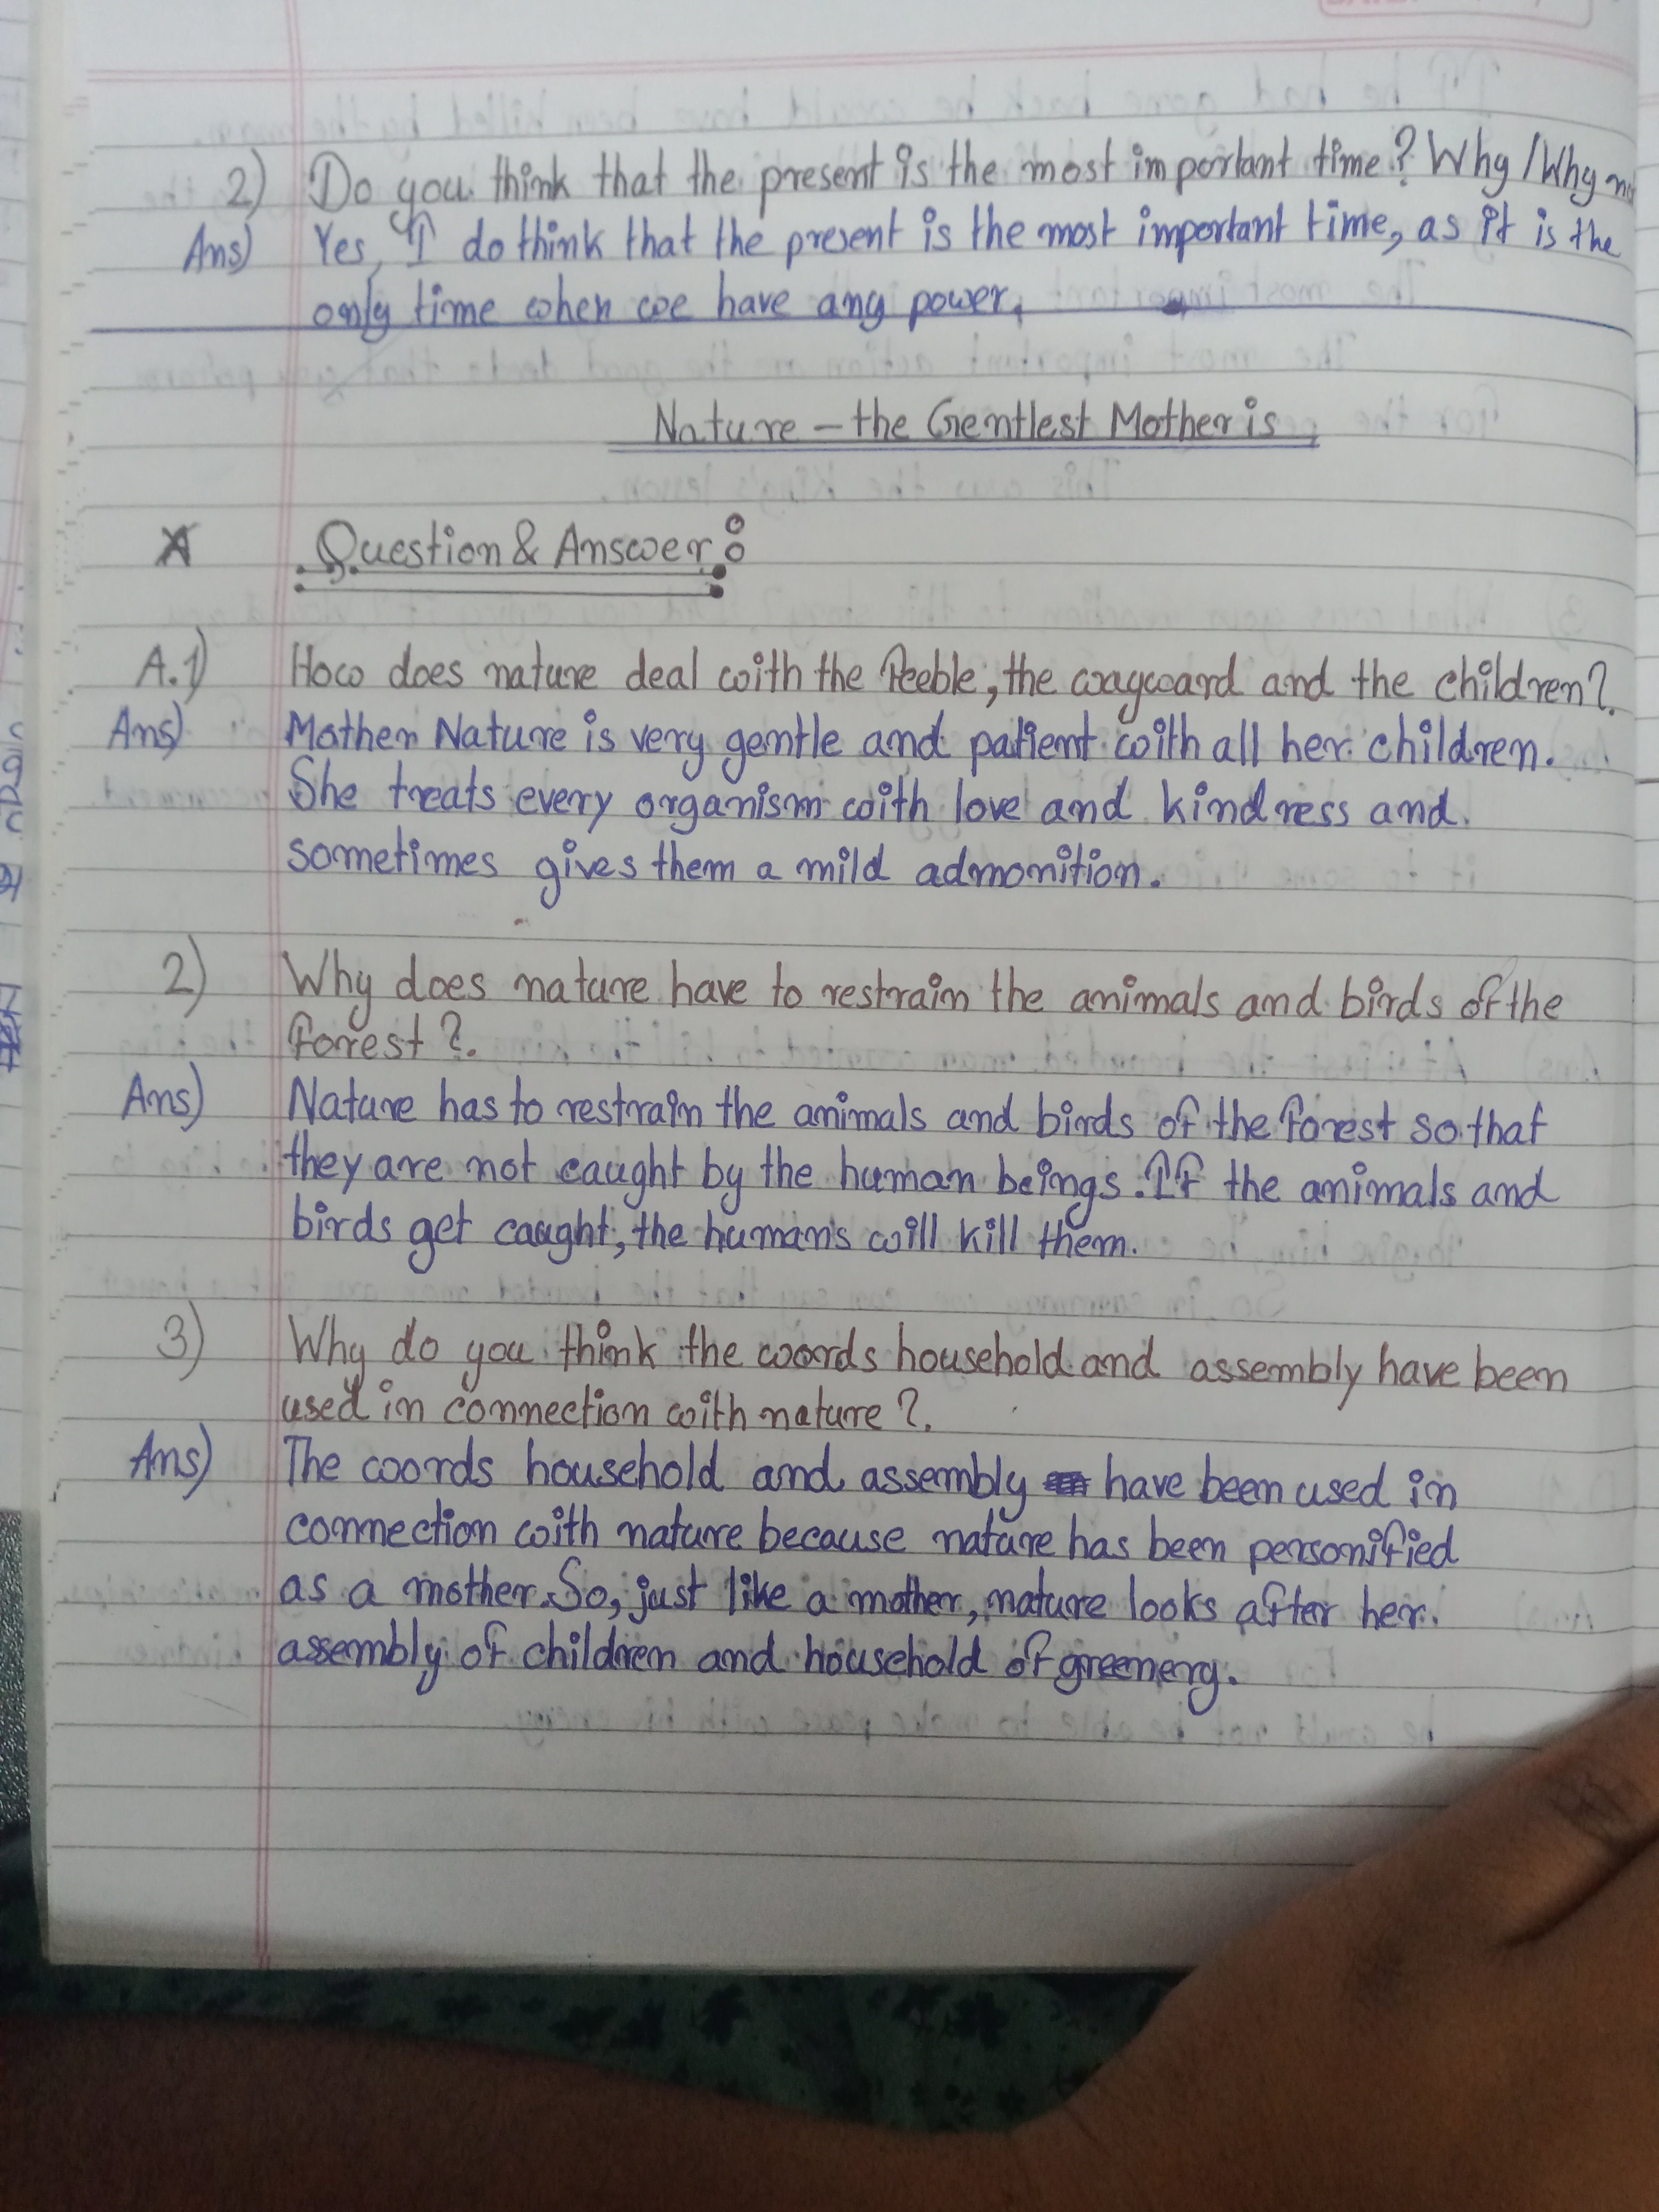 2) Do you think that the present is the most important time? Why/Why
Ans) Yes, I do think that the present is the most important time, as it is the
only time when we have any power.
Nature – the Gentlest Mother is,
Question & Answer:
A.1) How does nature deal with the feeble, the wayward and the children?
Ans) Mother Nature is very gentle and patient with all her children.
She treats every organism with love and kindness and
sometimes gives them a mild admonition.
2) Why does nature have to restrain the animals and birds of the
forest?
Ans) Nature has to restrain the animals and birds of the forest so that
they are not caught by the human beings. If the animals and
birds get caught, the humans will kill them.
3) Why do you think the words household and assembly have been
used in connection with nature?
Ans) The words household and assembly have been used in
connection with nature because nature has been personified
as a mother. So, just like a mother, nature looks after her
assembly of children and household of greenery.